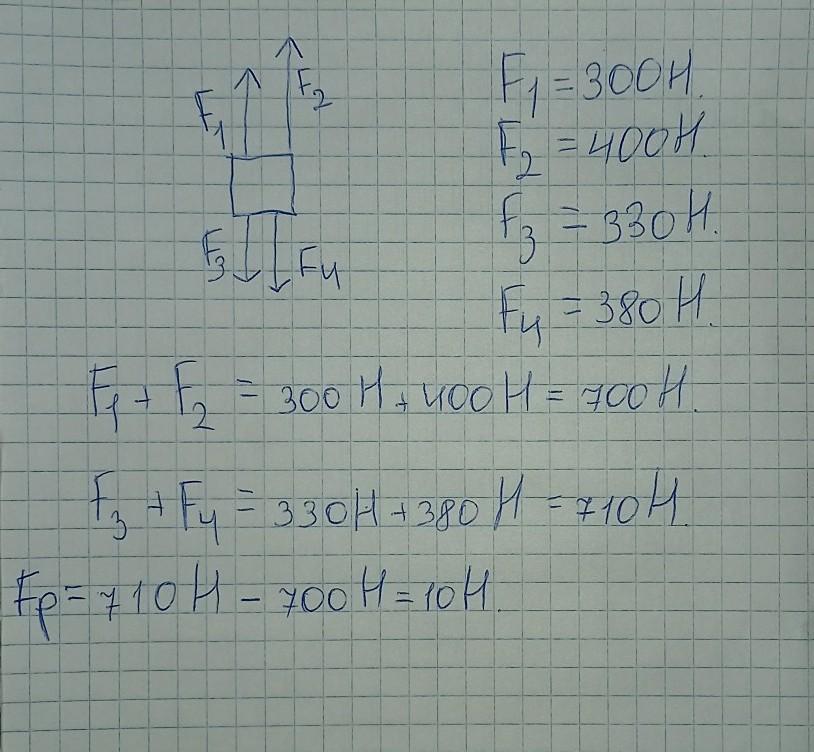 F1
F2
F3
F4
F1 = 300Н.
F2 = 400Н.
F3 = 330Н.
F4 = 380Н.
F1 + F2 = 300Н + 400Н = 700Н.
F3 + F4 = 330Н + 380Н = 710Н.
Fр = 710Н - 700Н = 10Н.